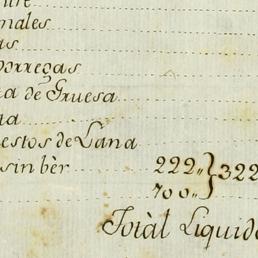 nales
as
orregas
a de Gruesa
na
estos de Lana
sin bèr 222,, } 322
700,,
Totàl Liquido